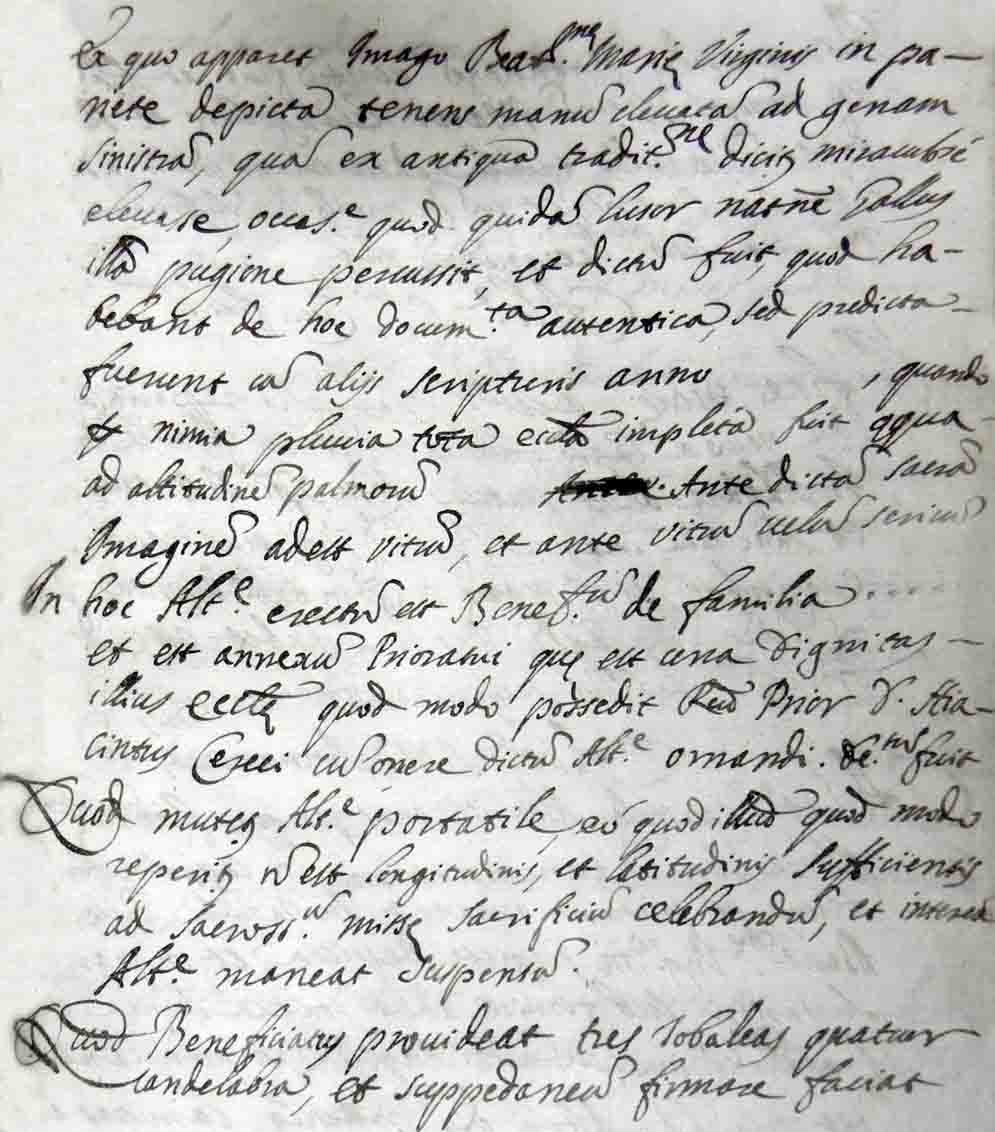 Ex quo apparet Imago Beat.me Marię Virginis in pa-
riete depicta tenens manũ eleuatã ad genam
sinistrã, quã ex antiqua tradit.ne dicitʒ
eleuasse, occas.e quod quidã lusor natnē Gallus
illã pugione percussit, et dictũ fuit, quod ha-
bebant de hoc docum.ta autentica, sed predicta
fuerunt cũ alijs scripturis anno , quando
nimia pluuia tota eccla impleta fuit aqua
ad altitudinẽ palmorũ . Ante dictã sacrã
Imaginẽ adest vitrũ, et ante vitrũ uelũ sericũ
In hoc Alt.e erectũ est Benef.ũ de familia ....
et est annexũ Prioratui quę est una Dignitas
illius ecclę quod modo possedit Reũd Prior D. Hia-
cintus cũ onere dictũ Alt.e ornandi. De.tus fuit
Quod mutetʒ Alt.e portatile, eo quod illud quod modo
reperitʒ nõ est longitudinis, et latitudinis sufficientis
ad sacross.ũ missę sacrificiũ celebrandũ, et interea
Alt.e maneat suspensũ.
Quod Beneficiatus prouideat tres tobaleas quatuor
candelabra, et suppedaneũ firmare faciat